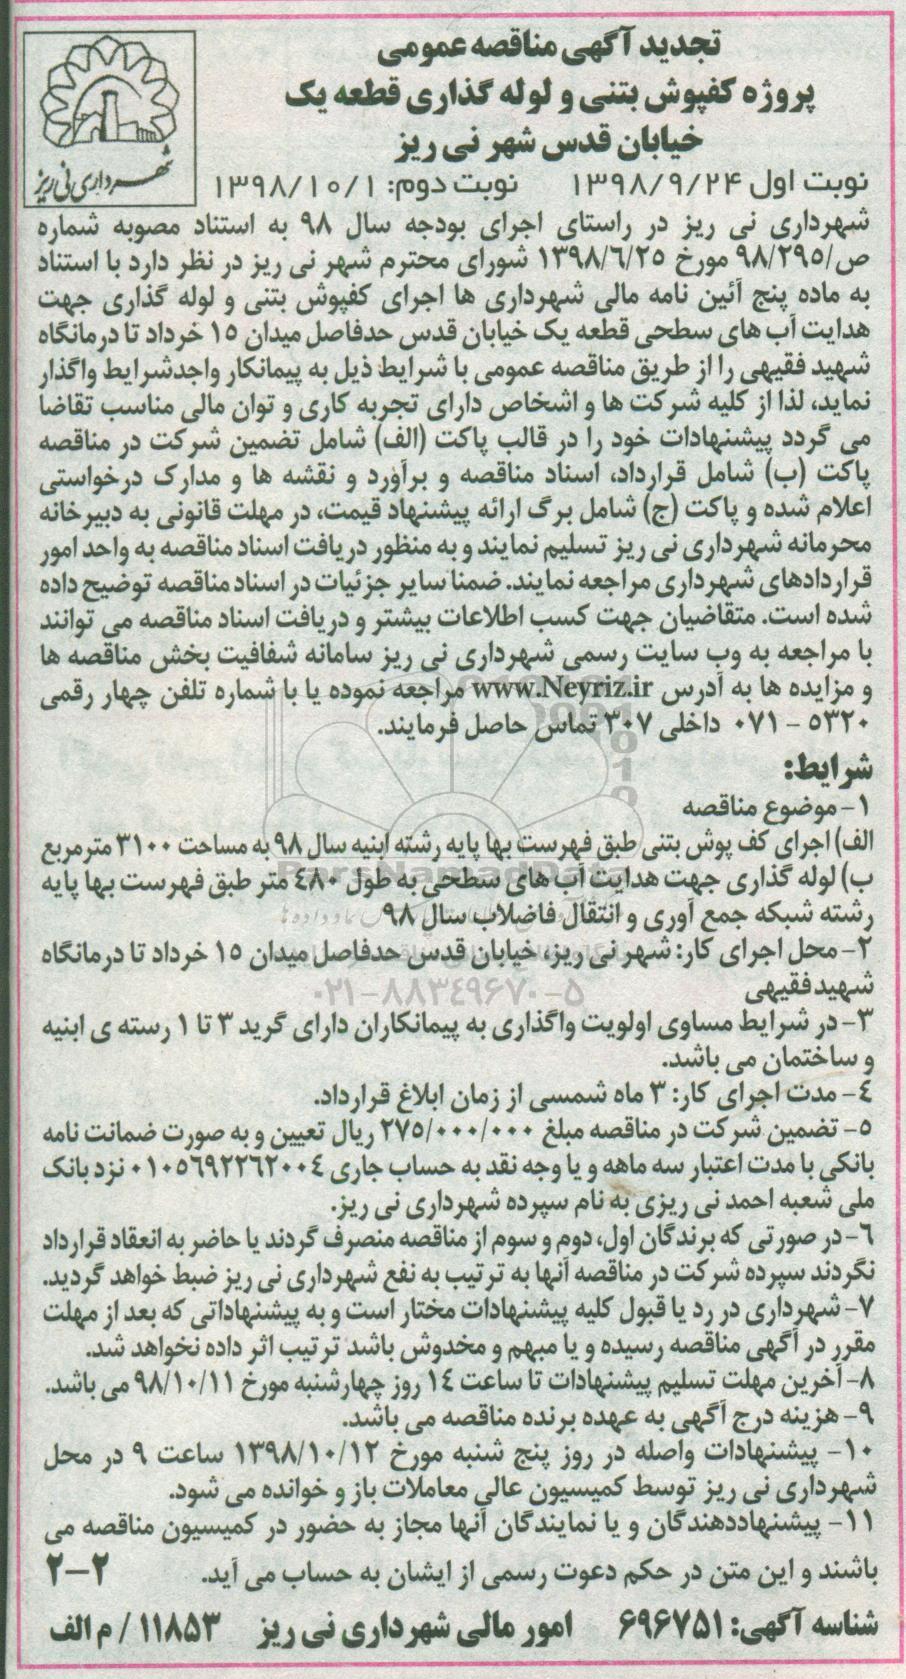 تجدید آگهی مناقصه عمومی
پروژه کفپوش بتنی و لوله گذاری قطعه یک
خیابان قدس شهر نی ریز
شهرداری نی ریز
نوبت اول ۱۳۹۸/۹/۲۴ نوبت دوم: ۱۳۹۸/۱۰/۱
شهرداری نی ریز در راستای اجرای بودجه سال ۹۸ به استناد مصوبه شماره
ص/۹۸/۲۹۵ مورخ ۱۳۹۸/٦/۲۵ شورای محترم شهر نی ریز در نظر دارد با استناد
به ماده پنج آئین نامه مالی شهرداری ها اجرای کفپوش بتنی و لوله گذاری جهت
هدایت آب های سطحی قطعه یک خیابان قدس حدفاصل میدان ۱۵ خرداد تا درمانگاه
شهید فقیهی را از طریق مناقصه عمومی با شرایط ذیل به پیمانکار واجدشرایط واگذار
نماید، لذا از کلیه شرکت ها و اشخاص دارای تجربه کاری و توان مالی مناسب تقاضا
می گردد پیشنهادات خود را در قالب پاکت (الف) شامل تضمین شرکت در مناقصه
پاکت (ب) شامل قرارداد، اسناد مناقصه و برآورد و نقشه ها و مدارک درخواستی
اعلام شده و پاکت (ج) شامل برگ ارائه پیشنهاد قیمت، در مهلت قانونی به دبیرخانه
محرمانه شهرداری نی ریز تسلیم نمایند و به منظور دریافت اسناد مناقصه به واحد امور
قراردادهای شهرداری مراجعه نمایند. ضمنا سایر جزئیات در اسناد مناقصه توضیح داده
شده است. متقاضیان جهت کسب اطلاعات بیشتر و دریافت اسناد مناقصه می توانند
با مراجعه به وب سایت رسمی شهرداری نی ریز سامانه شفافیت بخش مناقصه ها
و مزایده ها به آدرس www.Neyriz.ir مراجعه نموده یا با شماره تلفن چهار رقمی
۵۳۲۰ - ۰۷۱ داخلی ۳۰۷ تماس حاصل فرمایند.
شرایط:
۱- موضوع مناقصه
الف) اجرای کف پوش بتنی طبق فهرست بها پایه رشته ابنیه سال ۹۸ به مساحت ۳۱۰۰ مترمربع
ب) لوله گذاری جهت هدایت آب های سطحی به طول ٤٨٠ متر طبق فهرست بها پایه
رشته شبکه جمع آوری و انتقال فاضلاب سال ۹۸
ParsNamadData
۲- محل اجرای کار: شهر نی ریز، خیابان قدس حدفاصل میدان ۱۵ خرداد تا درمانگاه
شهید فقیهی
۰۲۱-۸۸۳۴۹۶۷۰-۵
۳- در شرایط مساوی اولویت واگذاری به پیمانکاران دارای گرید ۳ تا ۱ رسته ی ابنیه
و ساختمان می باشد.
٤- مدت اجرای کار: ۳ ماه شمسی از زمان ابلاغ قرارداد.
۵- تضمین شرکت در مناقصه مبلغ ۲۷۵/۰۰۰/۰۰۰ ریال تعیین و به صورت ضمانت نامه
بانکی با مدت اعتبار سه ماهه و یا وجه نقد به حساب جاری ۰۱۰۵٦۹۲۲٦۲۰۰٤ نزد بانک
ملی شعبه احمد نی ریزی به نام سپرده شهرداری نی ریز.
٦- در صورتی که برندگان اول، دوم و سوم از مناقصه منصرف گردند یا حاضر به انعقاد قرارداد
نگردند سپرده شرکت در مناقصه آنها به ترتیب به نفع شهرداری نی ریز ضبط خواهد گردید.
۷- شهرداری در رد یا قبول کلیه پیشنهادات مختار است و به پیشنهاداتی که بعد از مهلت
مقرر در آگهی مناقصه رسیده و یا مبهم و مخدوش باشد ترتیب اثر داده نخواهد شد.
۸- آخرین مهلت تسلیم پیشنهادات تا ساعت ۱٤ روز چهارشنبه مورخ ۹۸/۱۰/۱۱ می باشد.
۹- هزینه درج آگهی به عهده برنده مناقصه می باشد.
۱۰- پیشنهادات واصله در روز پنج شنبه مورخ ۱۳۹۸/۱۰/۱۲ ساعت ۹ در محل
شهرداری نی ریز توسط کمیسیون عالی معاملات باز و خوانده می شود.
۱۱- پیشنهاددهندگان و یا نمایندگان آنها مجاز به حضور در کمیسیون مناقصه می
باشند و این متن در حکم دعوت رسمی از ایشان به حساب می آید. ۲-۲
شناسه آگهی: ۶۹۶۷۵۱ امور مالی شهرداری نی ریز ۱۱۸۵۳ / م الف